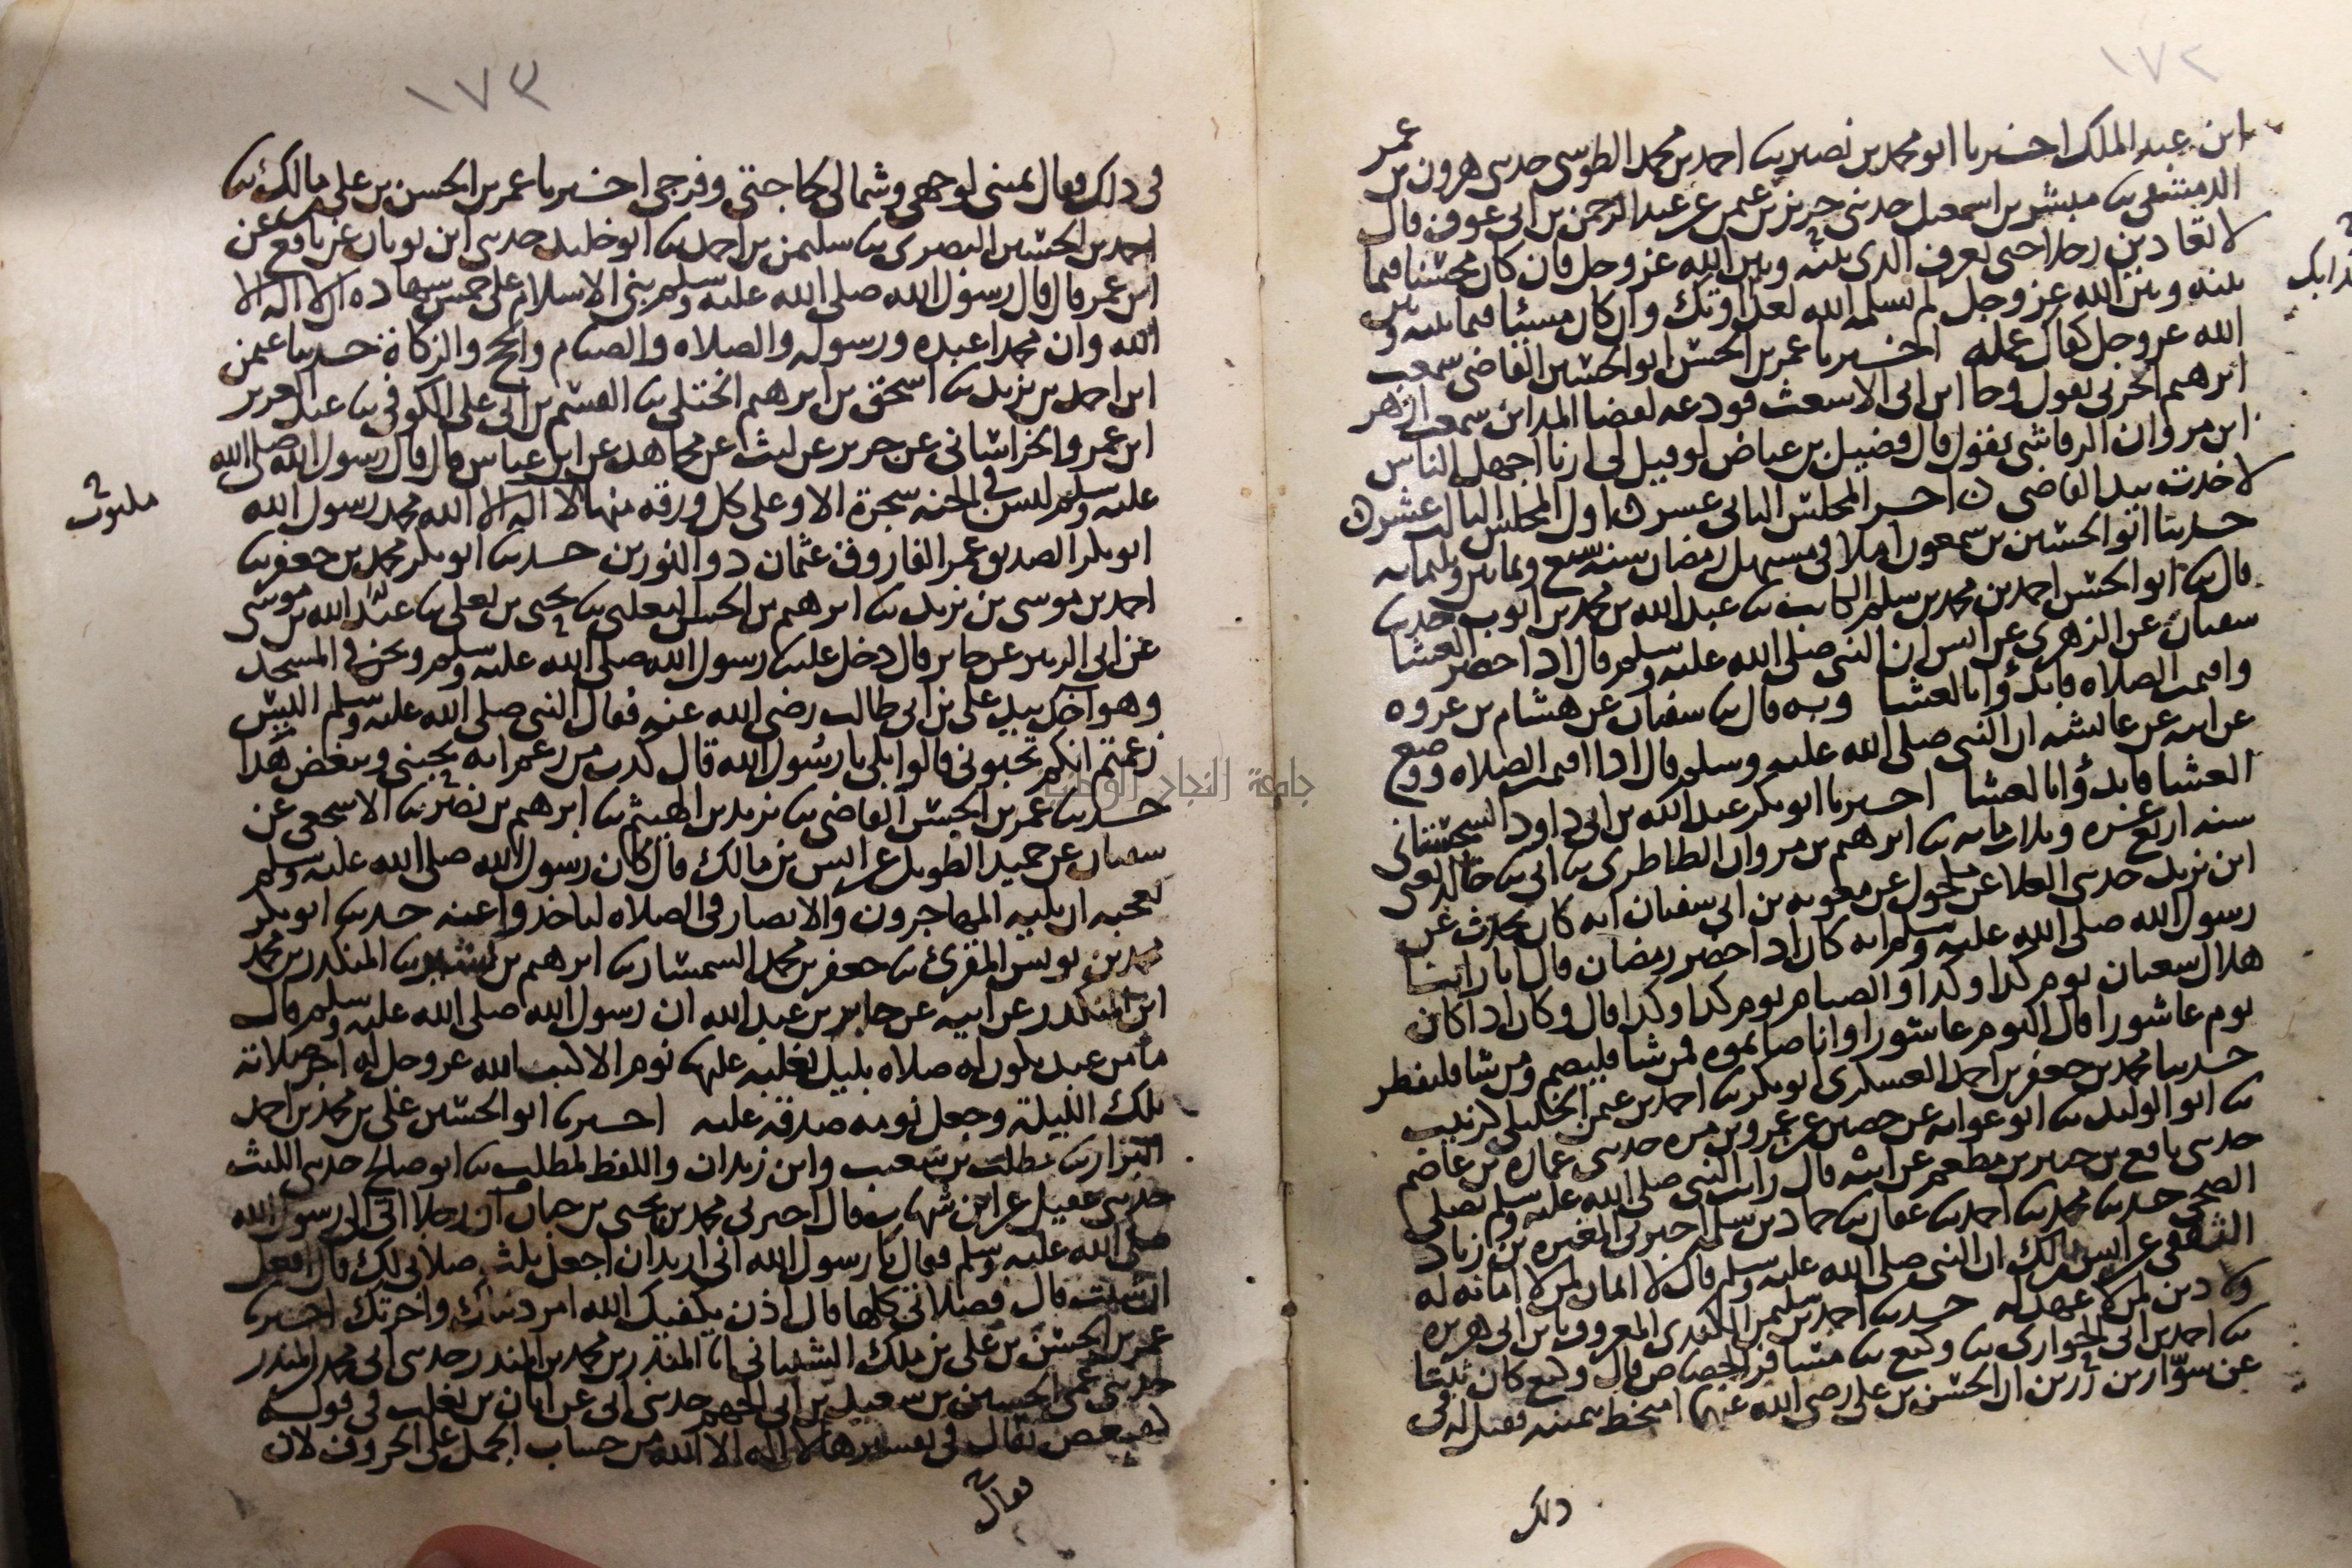 ١٧٢
ابن عبد الملك اخبرنا ابو محمد بن نصير نا احمد بن محمد الطوسي حدثني هرون بن عمر
الدمشقي نا مبشر بن اسمعيل حدثني حريز بن عمن عن عبد الرحمن بن ابي عوف قال
لا تعادين رجلا حتى تعرف الذي بينه وبين الله عز وجل فان كان محسنا فيما
بينه وبين الله عز وجل لم يسلمه الله لعداوتك وان كان مسيئا فيما بينه وبين
الله عز وجل كفاك عمله اخبرنا عمر بن الحسن ابو الحسين القاضي سمعت
ابرهيم الحربي يقول وجا ابن ابي الاسعث فودعه لقضا المداين سمعت ازهر
ابن مروان الرقاشي يقول قال فضيل بن عياض لو قيل لي ارنا اجهل الناس
لاخذت بيد القاضي اخر المجلس الثاني عشر اول المجلس الثالث عشر
حدثنا ابو الحسين بن سمعون املا في مستهل رمضان سنه سبع وثمانين وثلثمايه
قال نا ابو الحسن احمد بن محمد بن سلم الكاتب نا عبد الله بن محمد بن ايوب حدثنا
سفيان عن الزهري عن انس ان النبي صلى الله عليه وسلم قال اذا حضر العشا
واقيمت الصلاه فابدؤا بالعشا وبه قال نا سفيان عن هشام بن عروه
عن ابيه عن عائشه ان النبي صلى الله عليه وسلم قال اذا اقيمت الصلاه ووضع
العشا فابدؤا بالعشا اخبرنا ابو بكر عبد الله بن ابي داود السجستاني
سنه اربع عشره وثلاثمايه نا ابرهيم بن مروان الطاطري نا ابي نا خالد يعني
ابن يزيد حدثني العلا عن مكحول عن معويه بن ابي سفيان انه كان يحدث عن
رسول الله صلى الله عليه وسلم انه كان اذا حضر رمضان قال انا راينا
هلال شعبان يوم كذا وكذا والصيام يوم كذا وكذا قال وكان اذا كان
يوم عاشورا قال اليوم عاشورا وانا صايموه فمن شا فليصم ومن شا فليفطر
حدثنا محمد بن جعفر بن احمد العسكري ابو بكر نا احمد بن عيسى
نا ابو الوليد نا ابو عوانه عن حصين عن عمرو بن مره حدثني عماره بن عاصم
حدثني نافع بن جبير بن مطعم عن ابيه قال رايت النبي صلى الله عليه وسلم يصلي
الضحى حدثنا محمد نا احمد نا عفان نا حماد بن سلمه اخبرني المغيره بن زياد
الثقفي عن انس بن مالك ان النبي صلى الله عليه وسلم قال لا ايمان لمن لا امانه له
ولا دين لمن لا عهد له حدثنا احمد بن سليمن الكندي المعروف بابن ابي هريره
نا احمد بن ابي الحواري نا وكيع نا مسافر الجصاص قال وكيع كان ثبتا
عن سوار بن رزين ان الحسن بن علي رضي الله عنهما امتخط بيمينه فقيل له في
ذلك
١٧٣
في ذلك فقال يميني لوجهي وشمالي لحاجتي وفرجي اخبرنا عمر بن الحسن بن علي بن مالك نا
احمد بن الحسين البصري نا سليمن بن احمد نا ابو خليد حدثني ابن ثوبان عن نافع عن
ابن عمر قال قال رسول الله صلى الله عليه وسلم بني الاسلام على خمس شهاده ان لا اله الا
الله وان محمدا عبده ورسوله والصلاه والصيام والحج والزكاة حدثنا عمن
ابن احمد بن يزيد نا اسحق بن ابرهيم الختلي نا القسم بن ابي علي الكوفي نا عبد العزيز
ابن عمرو الخراساني عن جرير عن ليث عن مجاهد عن ابن عباس قال قال رسول الله صلى الله
عليه وسلم ليس في الجنه شجرة الا وعلى كل ورقه منها لا اله الا الله محمد رسول الله
مكتوب
ابو بكر الصديق عمر الفاروق عثمان ذو النورين حدثنا ابو بكر محمد بن جعفر نا
احمد بن موسى بن يزيد نا ابرهيم بن الحسن التغلبي نا يحيى بن يعلى نا عبيد الله بن موسى
عن ابي الزبير عن جابر قال دخل علينا رسول الله صلى الله عليه وسلم ونحن في المسجد
وهو اخذ بيد علي بن ابي طالب رضي الله عنه فقال النبي صلى الله عليه وسلم اليس
زعمتم انكم تحبوني قالوا بلى يا رسول الله قال كذب من زعم انه يحبني ويبغض هذا
حدثنا عمر بن الحسن القاضي نا يزيد بن الهيثم نا ابرهيم بن نصر نا الاشجعي عن
سفيان عن حميد الطويل عن انس بن مالك قال كان رسول الله صلى الله عليه وسلم
يعجبه ان يليه المهاجرون والانصار في الصلاه لياخذوا عنه حدثنا ابو بكر
محمد بن يونس المقرئ نا جعفر بن محمد السمسار نا ابرهيم بن بشير نا المنكدر بن محمد
ابن المنكدر عن ابيه عن جابر بن عبد الله ان رسول الله صلى الله عليه وسلم قال
ما من عبد يكون له صلاه بليل يغلبه عليها نوم الا كتب الله عز وجل له اجر صلاته
تلك الليلة وجعل نومه صدقه عليه اخبرنا ابو الحسين علي بن محمد بن احمد
البزار نا مطلب بن شعيب وابن زيدان واللفظ لمطلب نا ابو صالح حدثني الليث
حدثني عقيل عن ابن شهاب قال اخبرني محمد بن يحيى بن حبان ان رجلا اتى الى رسول الله
صلى الله عليه وسلم فقال يا رسول الله اني اريد ان اجعل ثلث صلاتي لك قال افعل
ان شئت قال فصلاتي كلها قال اذن يكفيك الله امر دنياك واخرتك اخبرنا
عمر بن الحسن بن علي بن ملك الشيباني انا المنذر بن محمد بن المنذر حدثني ابي محمد بن المنذر
حدثني عمي الحسين بن سعيد بن ابي الجهم حدثني ابي عن ابان بن تغلب في قوله
كهيعص يقال في تفسيرها لا اله الا الله من حساب الجمل على الحروف لان